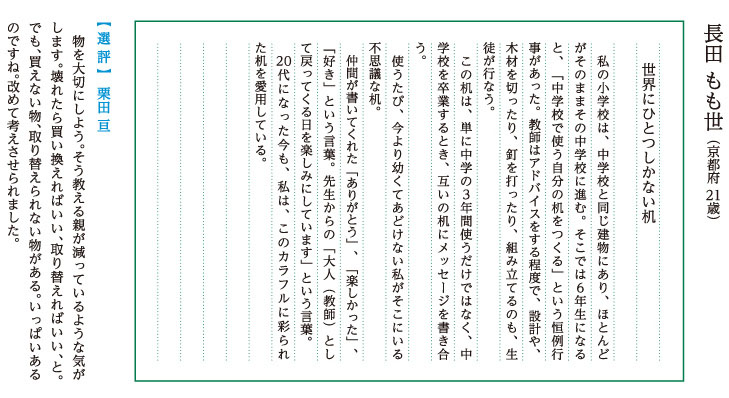 長田 もも世（京都府 21歳）
世界にひとつしかない机
私の小学校は、中学校と同じ建物にあり、ほとんど
がそのままその中学校に進む。そこでは６年生になる
と、「中学校で使う自分の机をつくる」という恒例行
事があった。教師はアドバイスをする程度で、設計や、
木材を切ったり、釘を打ったり、組み立てるのも、生
徒が行なう。
この机は、単に中学の３年間使うだけではなく、中
学校を卒業するとき、互いの机にメッセージを書き合
う。
使うたび、今より幼くてあどけない私がそこにいる
不思議な机。
仲間が書いてくれた「ありがとう」、「楽しかった」、
「好き」という言葉。先生からの「大人（教師）とし
て戻ってくる日を楽しみにしています」という言葉。
20代になった今も、私は、このカラフルに彩られ
た机を愛用している。
【選評】 栗田 亘
物を大切にしよう。そう教える親が減っているような気が
します。壊れたら買い換えればいい、取り替えればいい、と。
でも、買えない物、取り替えられない物がある。いっぱいある
のですね。改めて考えさせられました。